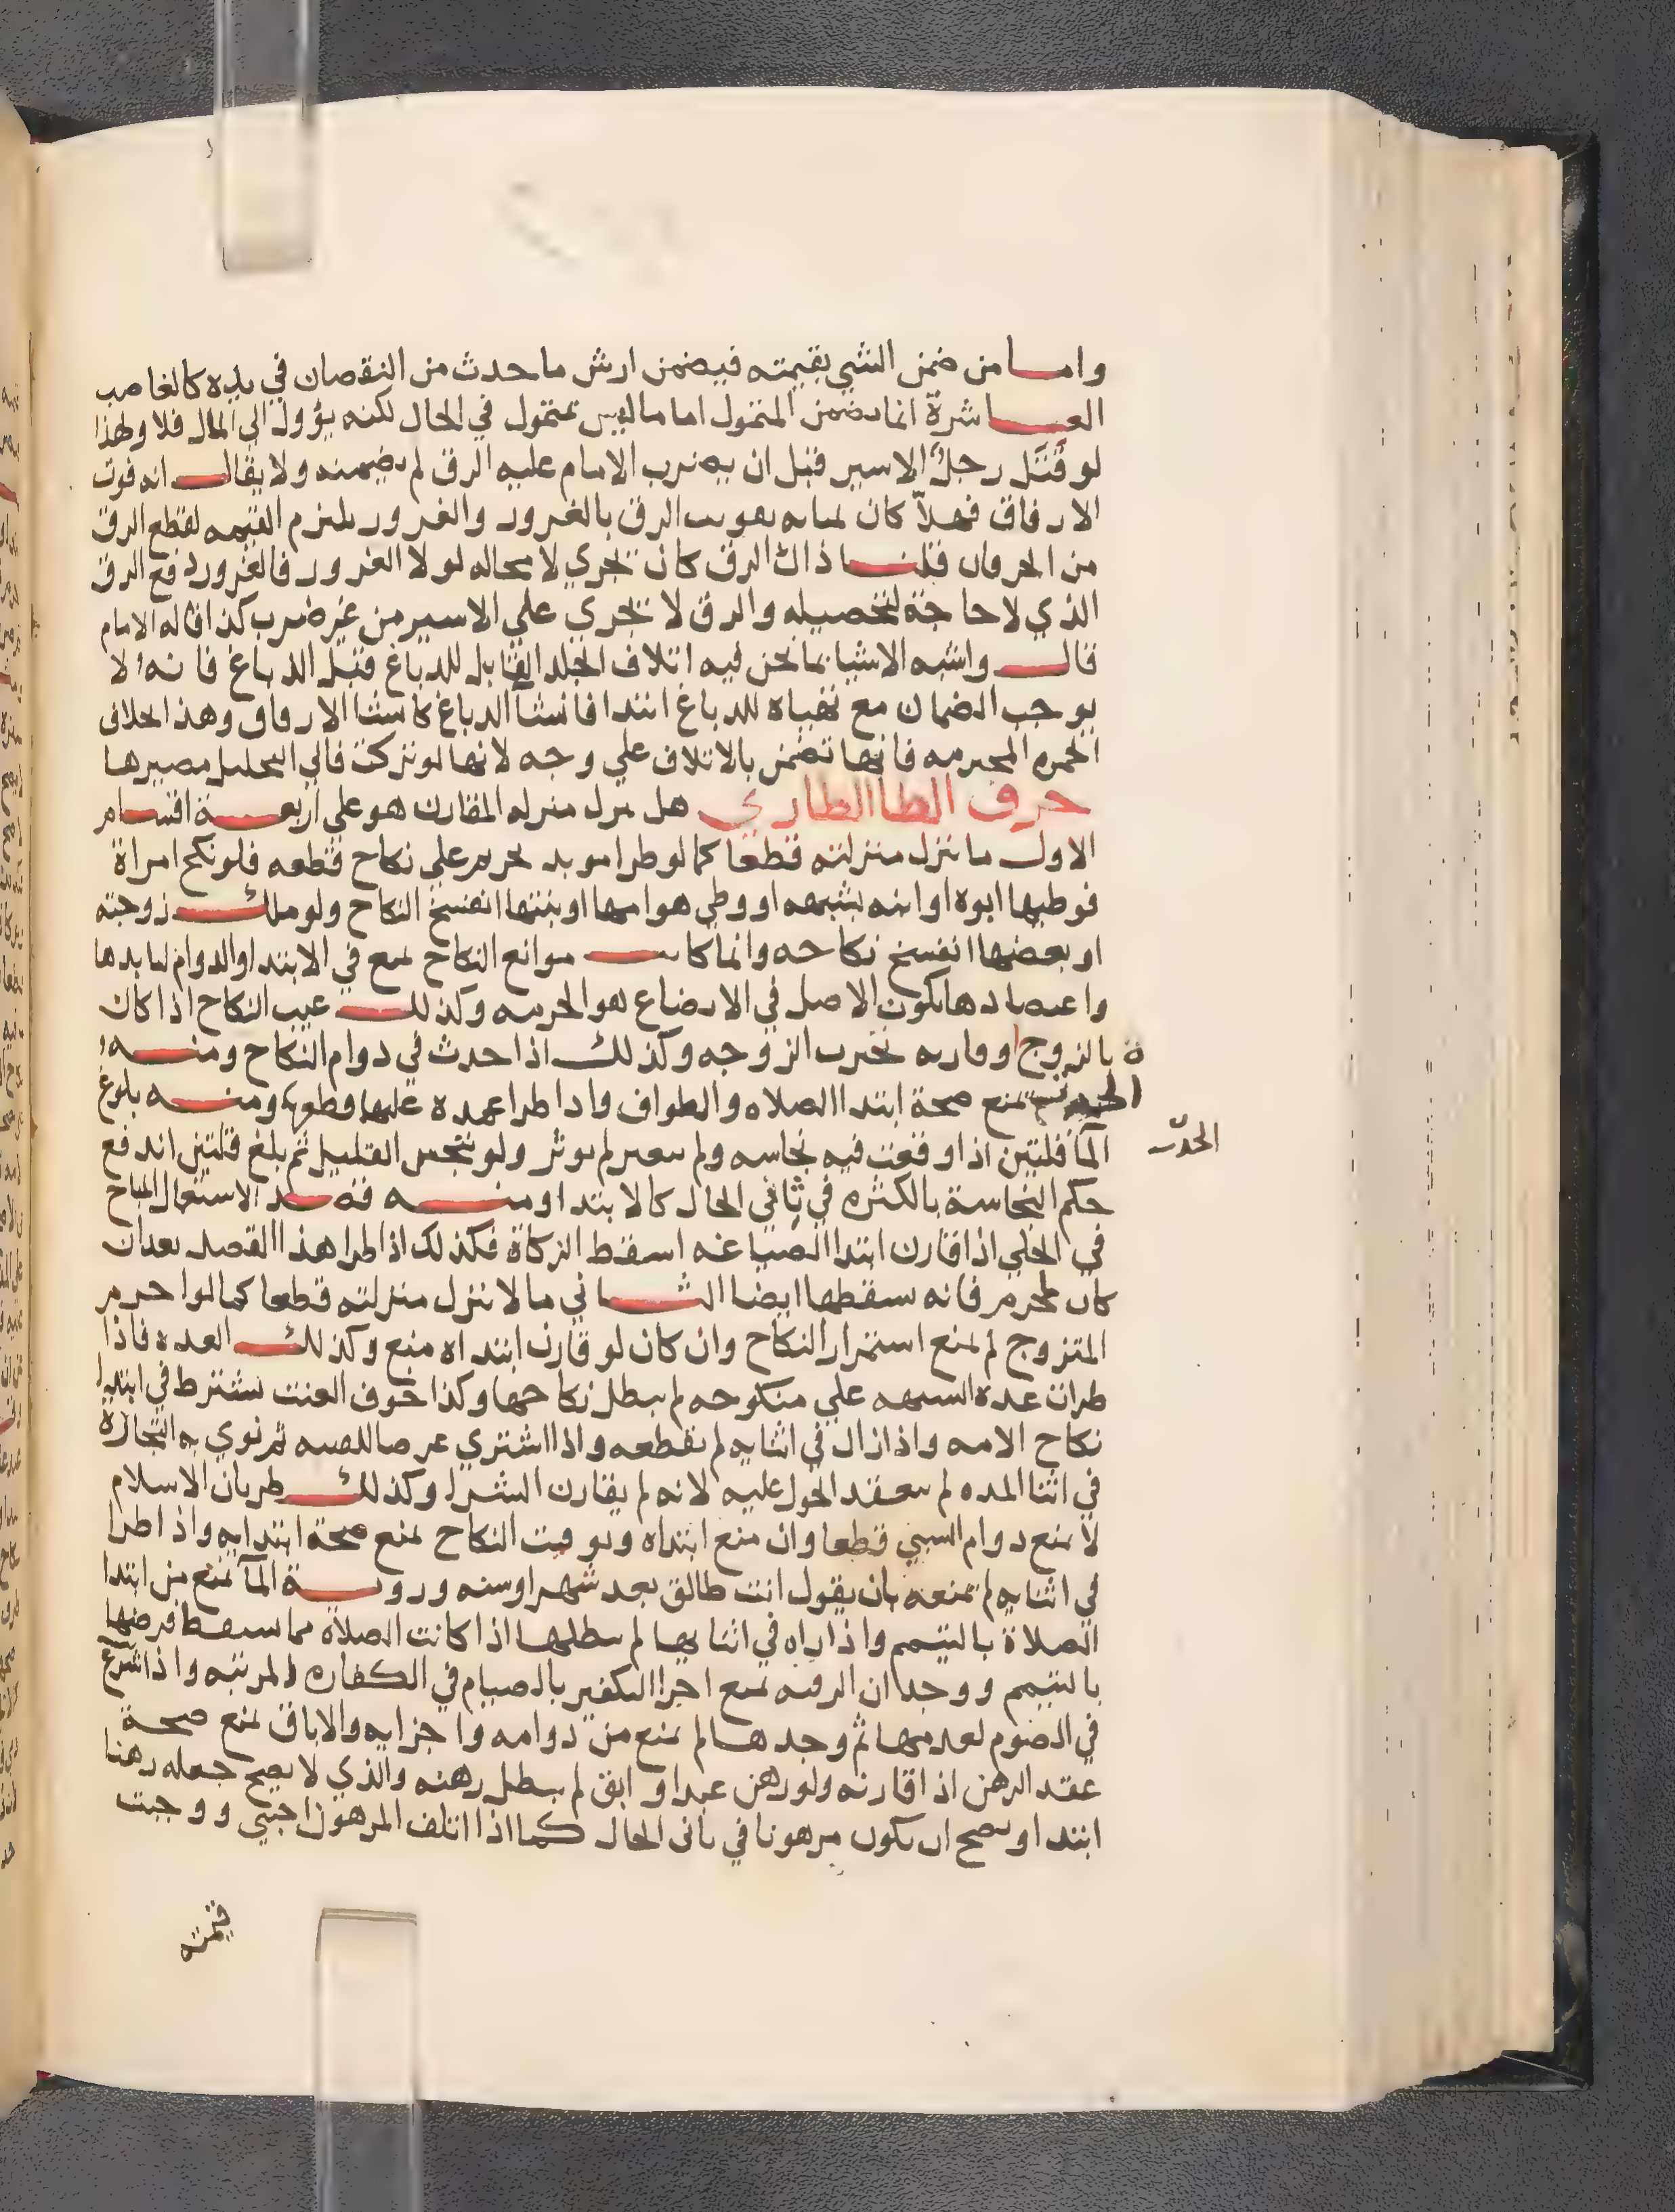 واما من ضمن الشي بقيمته فيضمن ارش ما حدث من النقصان في يده كالغاصب
العاشرة انما يضمن المتمول اما ما ليس بمتمول في الحال لكنه يؤول الى المال فلا ولهذا
لو قتل رجل الاسير قبل ان يضرب الامام عليه الرق لم يضمنه ولا يقال انه فوت
الارقاق فهلا كان بمثابه تفويت الرق بالغرور والغرور يلتزم القيمه لقطع الرق
من الجريان قلنا ذاك الرق كان يجري لا محاله لولا الغرور فالغرور دفع الرق
الذي لا حاجة لتحصيله والرق لا يجري على الاسير من غير ضرب كذا قاله الامام
قال واشبه الاشيا بما نحن فيه اتلاف الجلد القابل للدباغ قبل الدباغ فانه لا
يوجب الضمان مع تهياه للدباغ ابتدا فانشأ الدباغ كانشا الارقاق وهذا بخلاف
الخمره المحترمه فانها تضمن بالاتلاف على وجه لانها لو تركت فالي التحليل مصيرها
حرف الطا الطاري هل ينزل منزله المقارن هو على اربعة اقسام
الاول ما ينزل منزلته قطعا كما لو طرا موبد تحريم علي نكاح قطعه فلو نكح امراة
فوطيها ابوه او ابنه بشبهه او وطي هو امها او بنتها انفسخ النكاح ولو ملك زوجته
او بعضها انفسخ نكاحه وانما كانت موانع النكاح تمنع في الابتدا والدوام لتابدها
واعتضادها بكون الاصل في الارضاع هو الحرمه وكذلك عيب النكاح اذا كان
بالزوج وقارنه تخيرت الزوجه وكذلك اذا حدث في دوام النكاح ومنه
الحدث يمنع صحة ابتدا الصلاه والطواف واذا طرا عمده عليها قطعها ومنه بلوغ
الحدث
المأ قلتين اذا وقعت فيه نجاسه ولم يتغير لم يوثر ولو تنجس القليل ثم بلغ قلتين اندفع
حكم النجاسة بالكثره في ثاني الحال كالابتدا ومنه قصد الاستعمال المباح
في الحلي اذا قارن ابتدا الصياغه اسقط الزكاة فكذلك اذا طرا هذا القصد بعد ان
كان لمحرم فانه يسقطها ايضا الثاني ما لا ينزل منزلته قطعا كما لو احرم
المتزوج لم يمنع استمرار النكاح وان كان لو قارن ابتداه منع وكذلك العده فاذا
طرات عدة الشبهه علي منكوحه لم يبطل نكاحها وكذا خوف العنت يشترط في ابتدا
نكاح الامه واذا زال في اثنايه لم يقطعه واذا اشتري عرضا للقنيه ثم نوي به التجارة
في اثنا المده لم ينعقد الحول عليه لانه لم يقارن الشرا وكذلك طريان الاسلام
لا يمنع دوام السبي قطعا وان منع ابتداه وتوقيت النكاح يمنع صحة ابتدايه واذا طرا
في اثنايه لم يمنعه بان يقول انت طالق بعد شهر او سنه ورويــة المآ تمنع من ابتدا
الصلاة بالتيمم واذا راه في اثنايها لم يبطلها اذا كانت الصلاة مما يسقط فرضها
بالتيمم ووجدان الرقبه يمنع اجزا التكفير بالصيام في الكفاره المرتبه واذا شرع
في الصوم لعدمها ثم وجدها لم يمنع من دوامه واجزايه والاباق يمنع صحة
عقد الرهن اذا قارنه ولو رهن عبدا وابق لم يبطل رهنه والذي لا يصح جعله رهنا
ابتدا ويصح ان يكون مرهونا في ثاني الحال كما اذا اتلف المرهون اجنبي ووجبت
قيمته